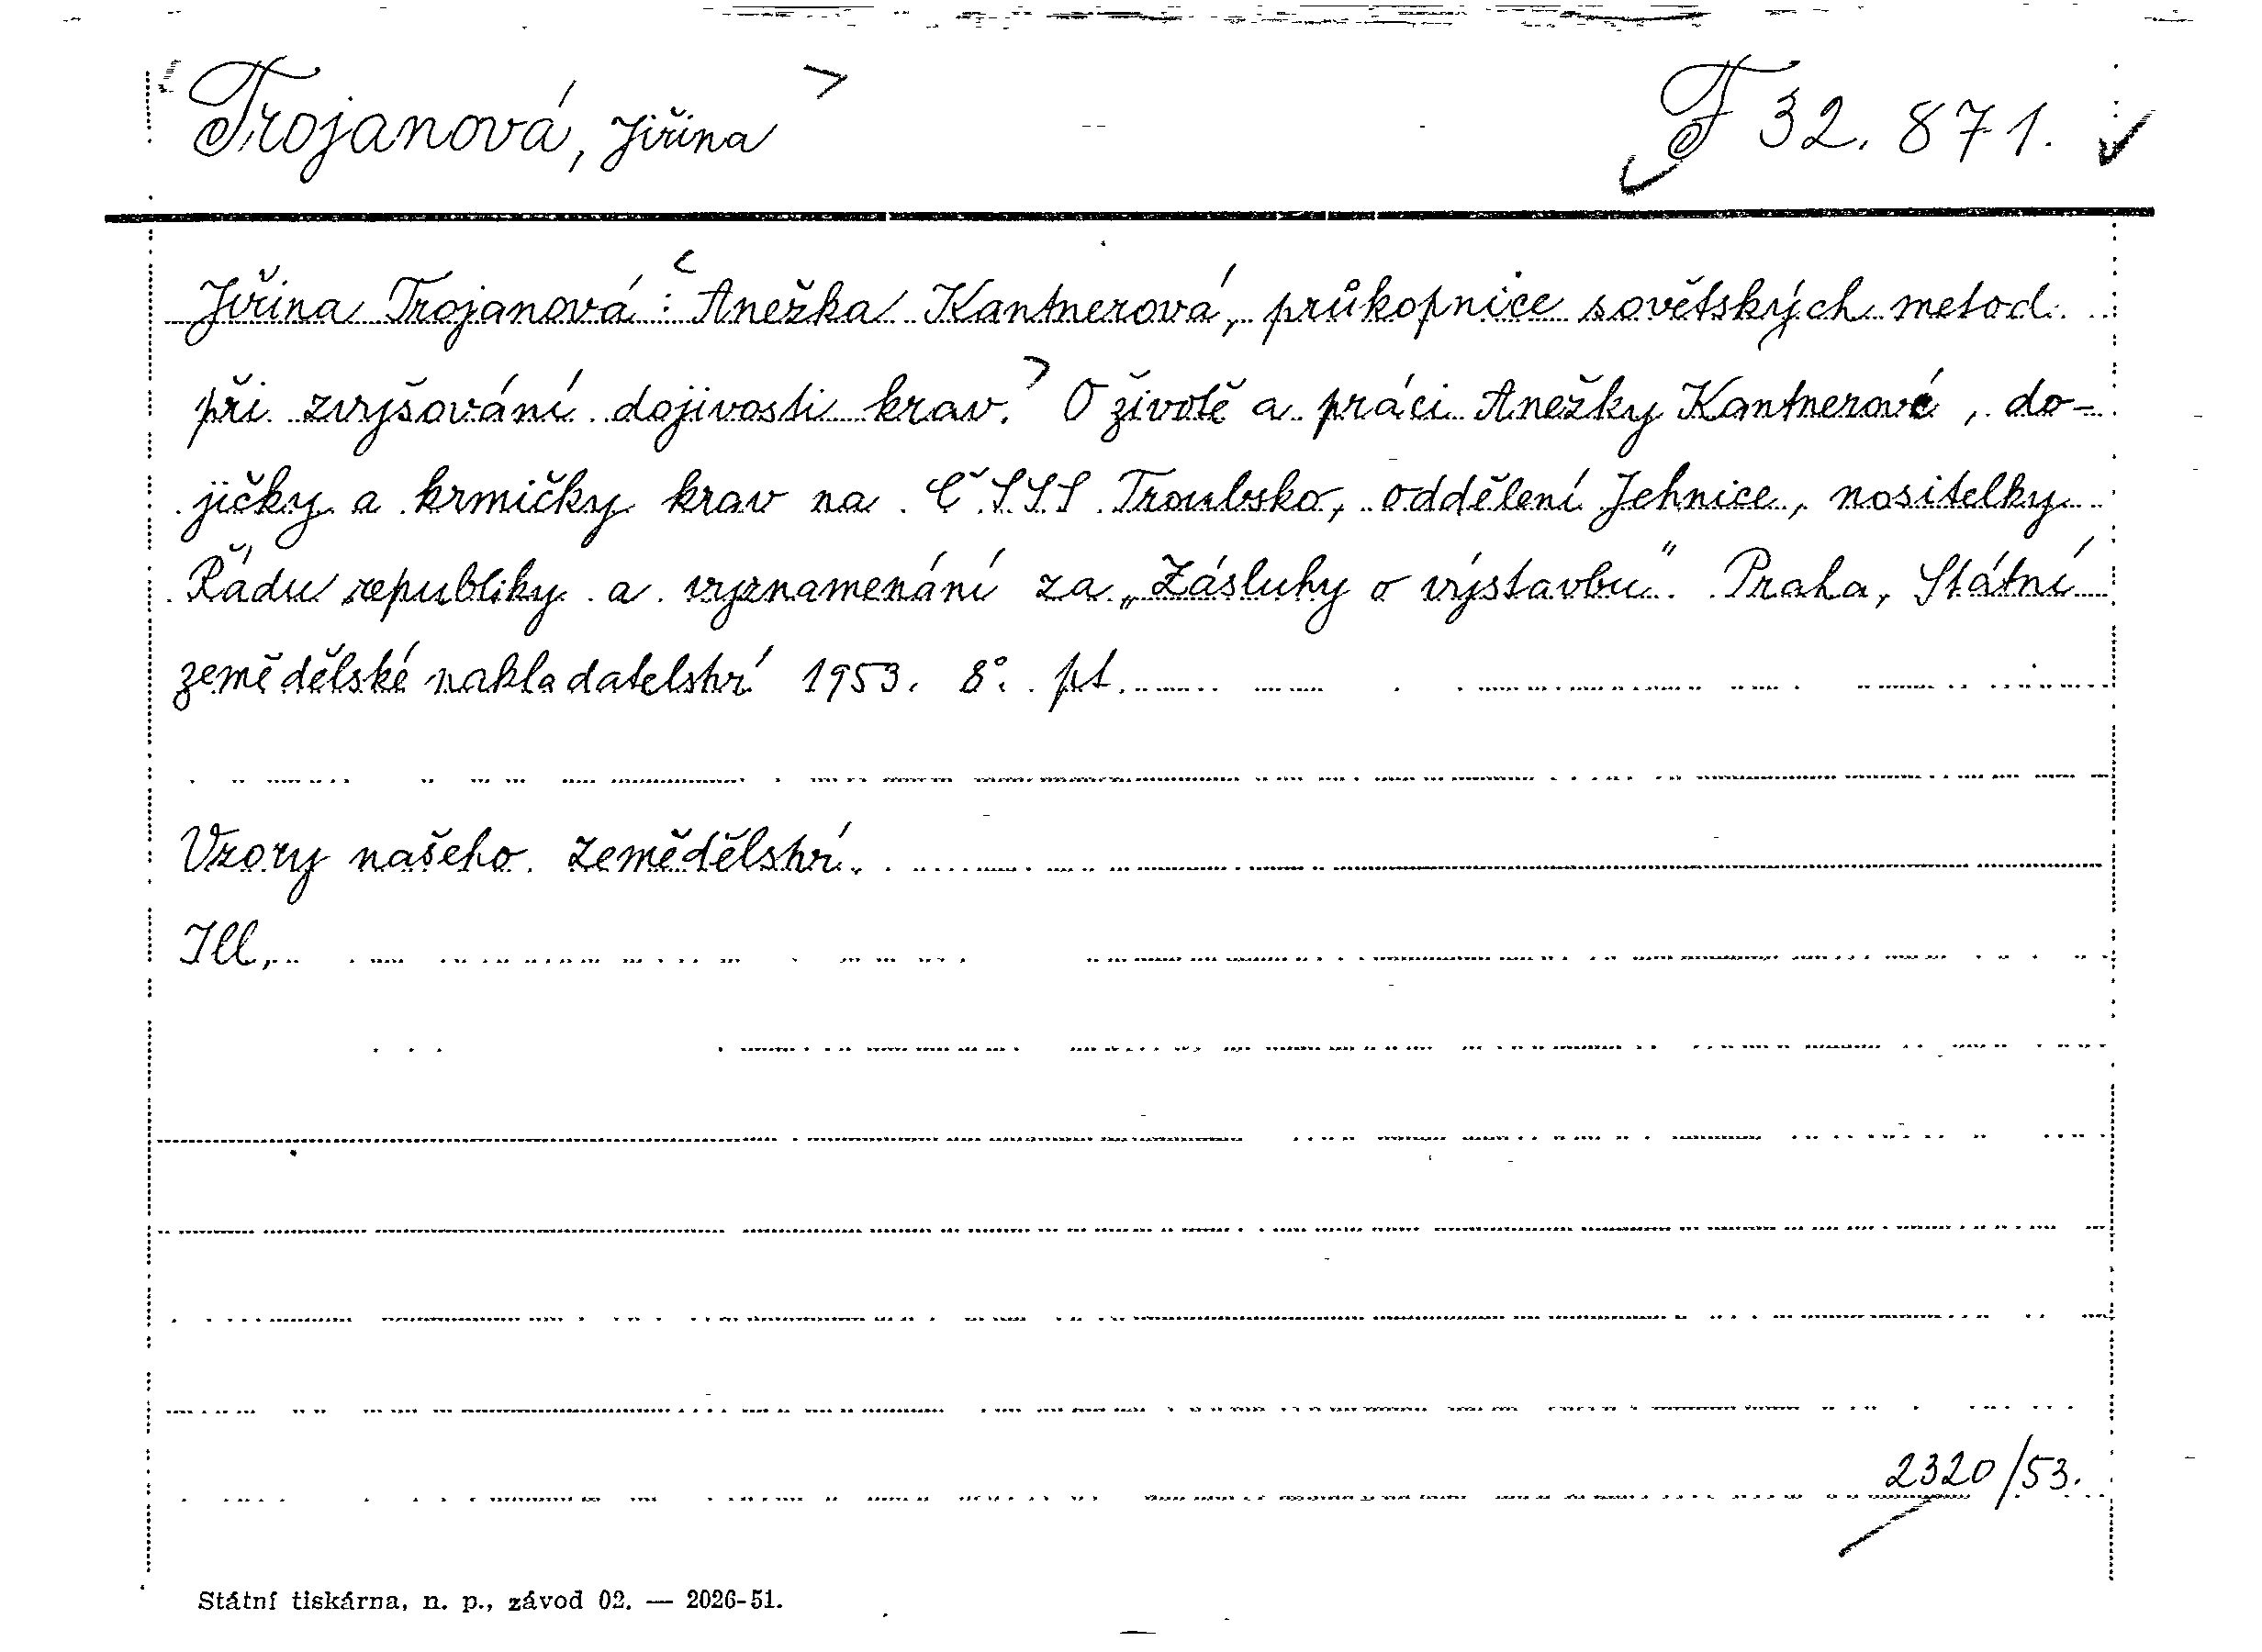 Trojanová, Jiřina
F 32.871.
Jiřina Trojanová: Anežka Kantnerová, průkopnice sovětských metod
při zvyšování dojivosti krav. O životě a práci Anežky Kantnerové, do-
jičky a krmičky krav na ČSSS Troubsko, oddělení Jehnice, nositelky
Řádu republiky a vyznamenání za „Zásluhy o výstavbu". Praha, Státní
zemědělské nakladatelství 1953. 8°. pt.
Vzory našeho zemědělství.
Ill.
2320/53.
Státní tiskárna, n. p., závod 02. — 2026-51.